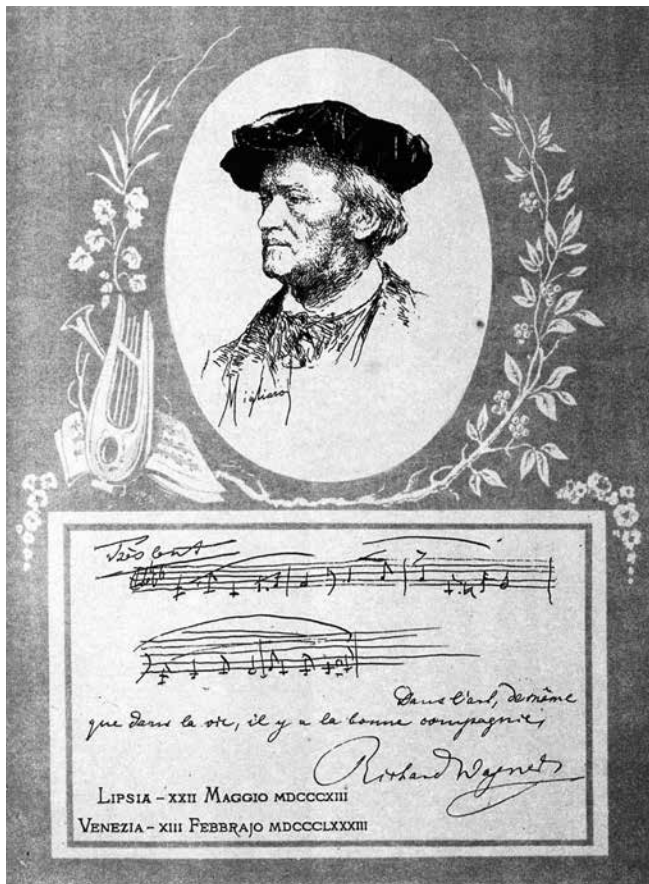 Migliaro
Très lent
Dans l'art, de même
que dans la vie, il y a la bonne compagnie,
Richard Wagner
LIPSIA – XXII MAGGIO MDCCCXIII
VENEZIA – XIII FEBBRAJO MDCCCLXXXIII